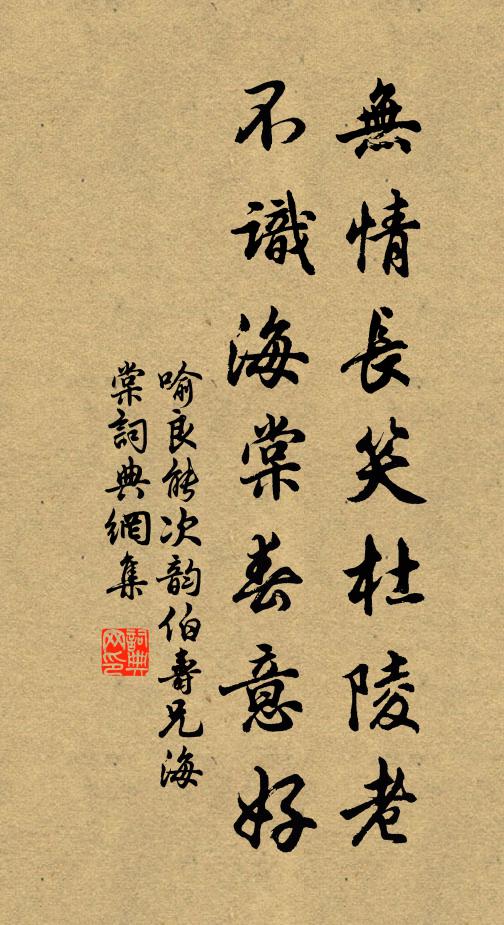 無情長笑杜陵老
不識海棠春意好
喻良能次韵伯壽兄海
棠詞典網集
詞典
网印